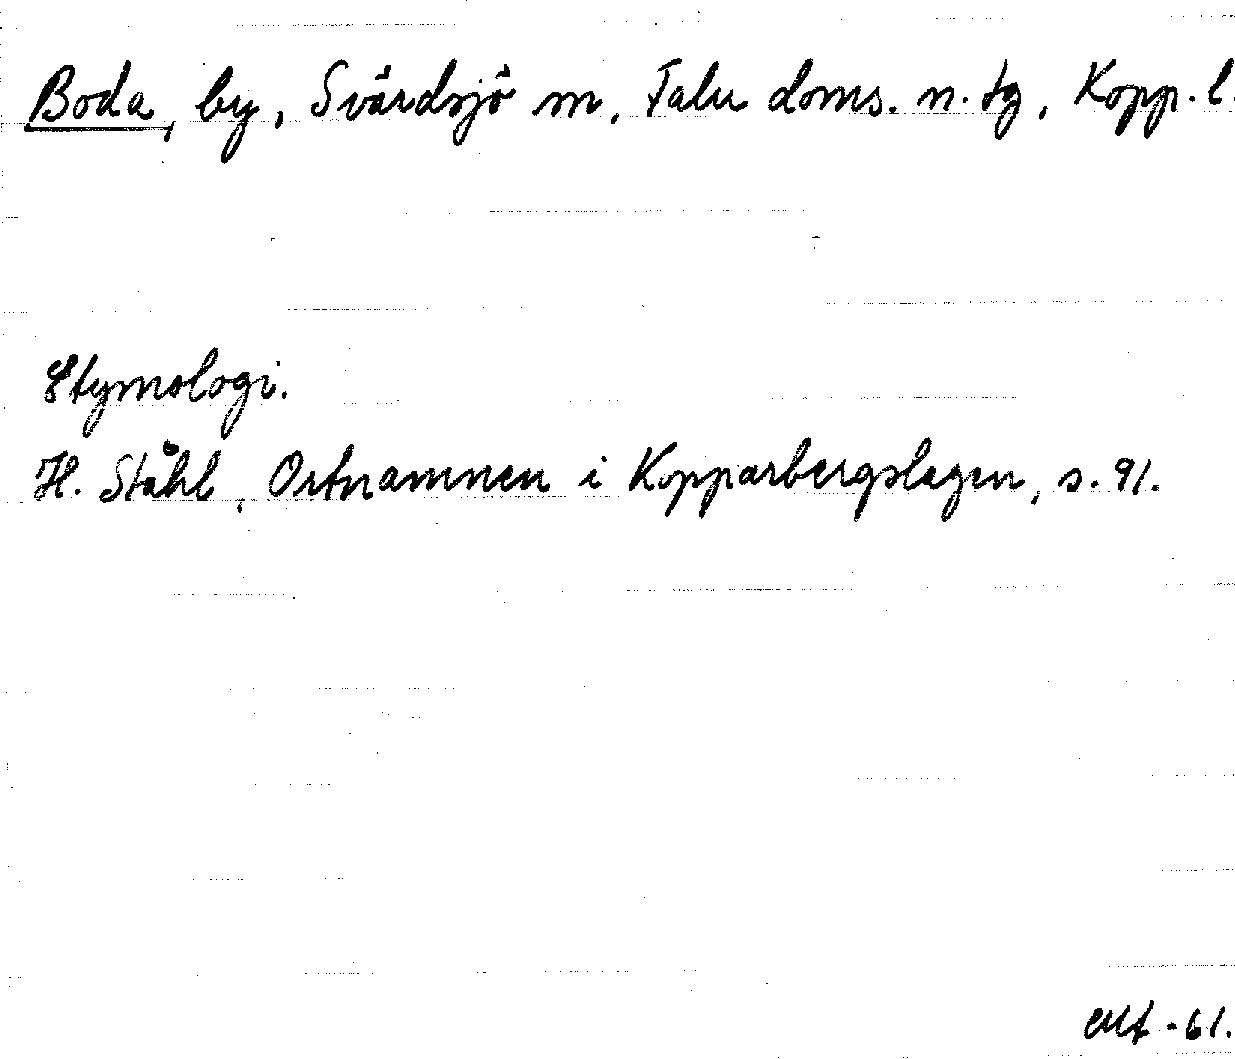 Boda, by, Svärdsjö sn, Falu doms. n. tg, Kopp. l.
Etymologi.
H. Ståhl, Ortnamnen i Kopparbergslagen, s. 91.
-61.